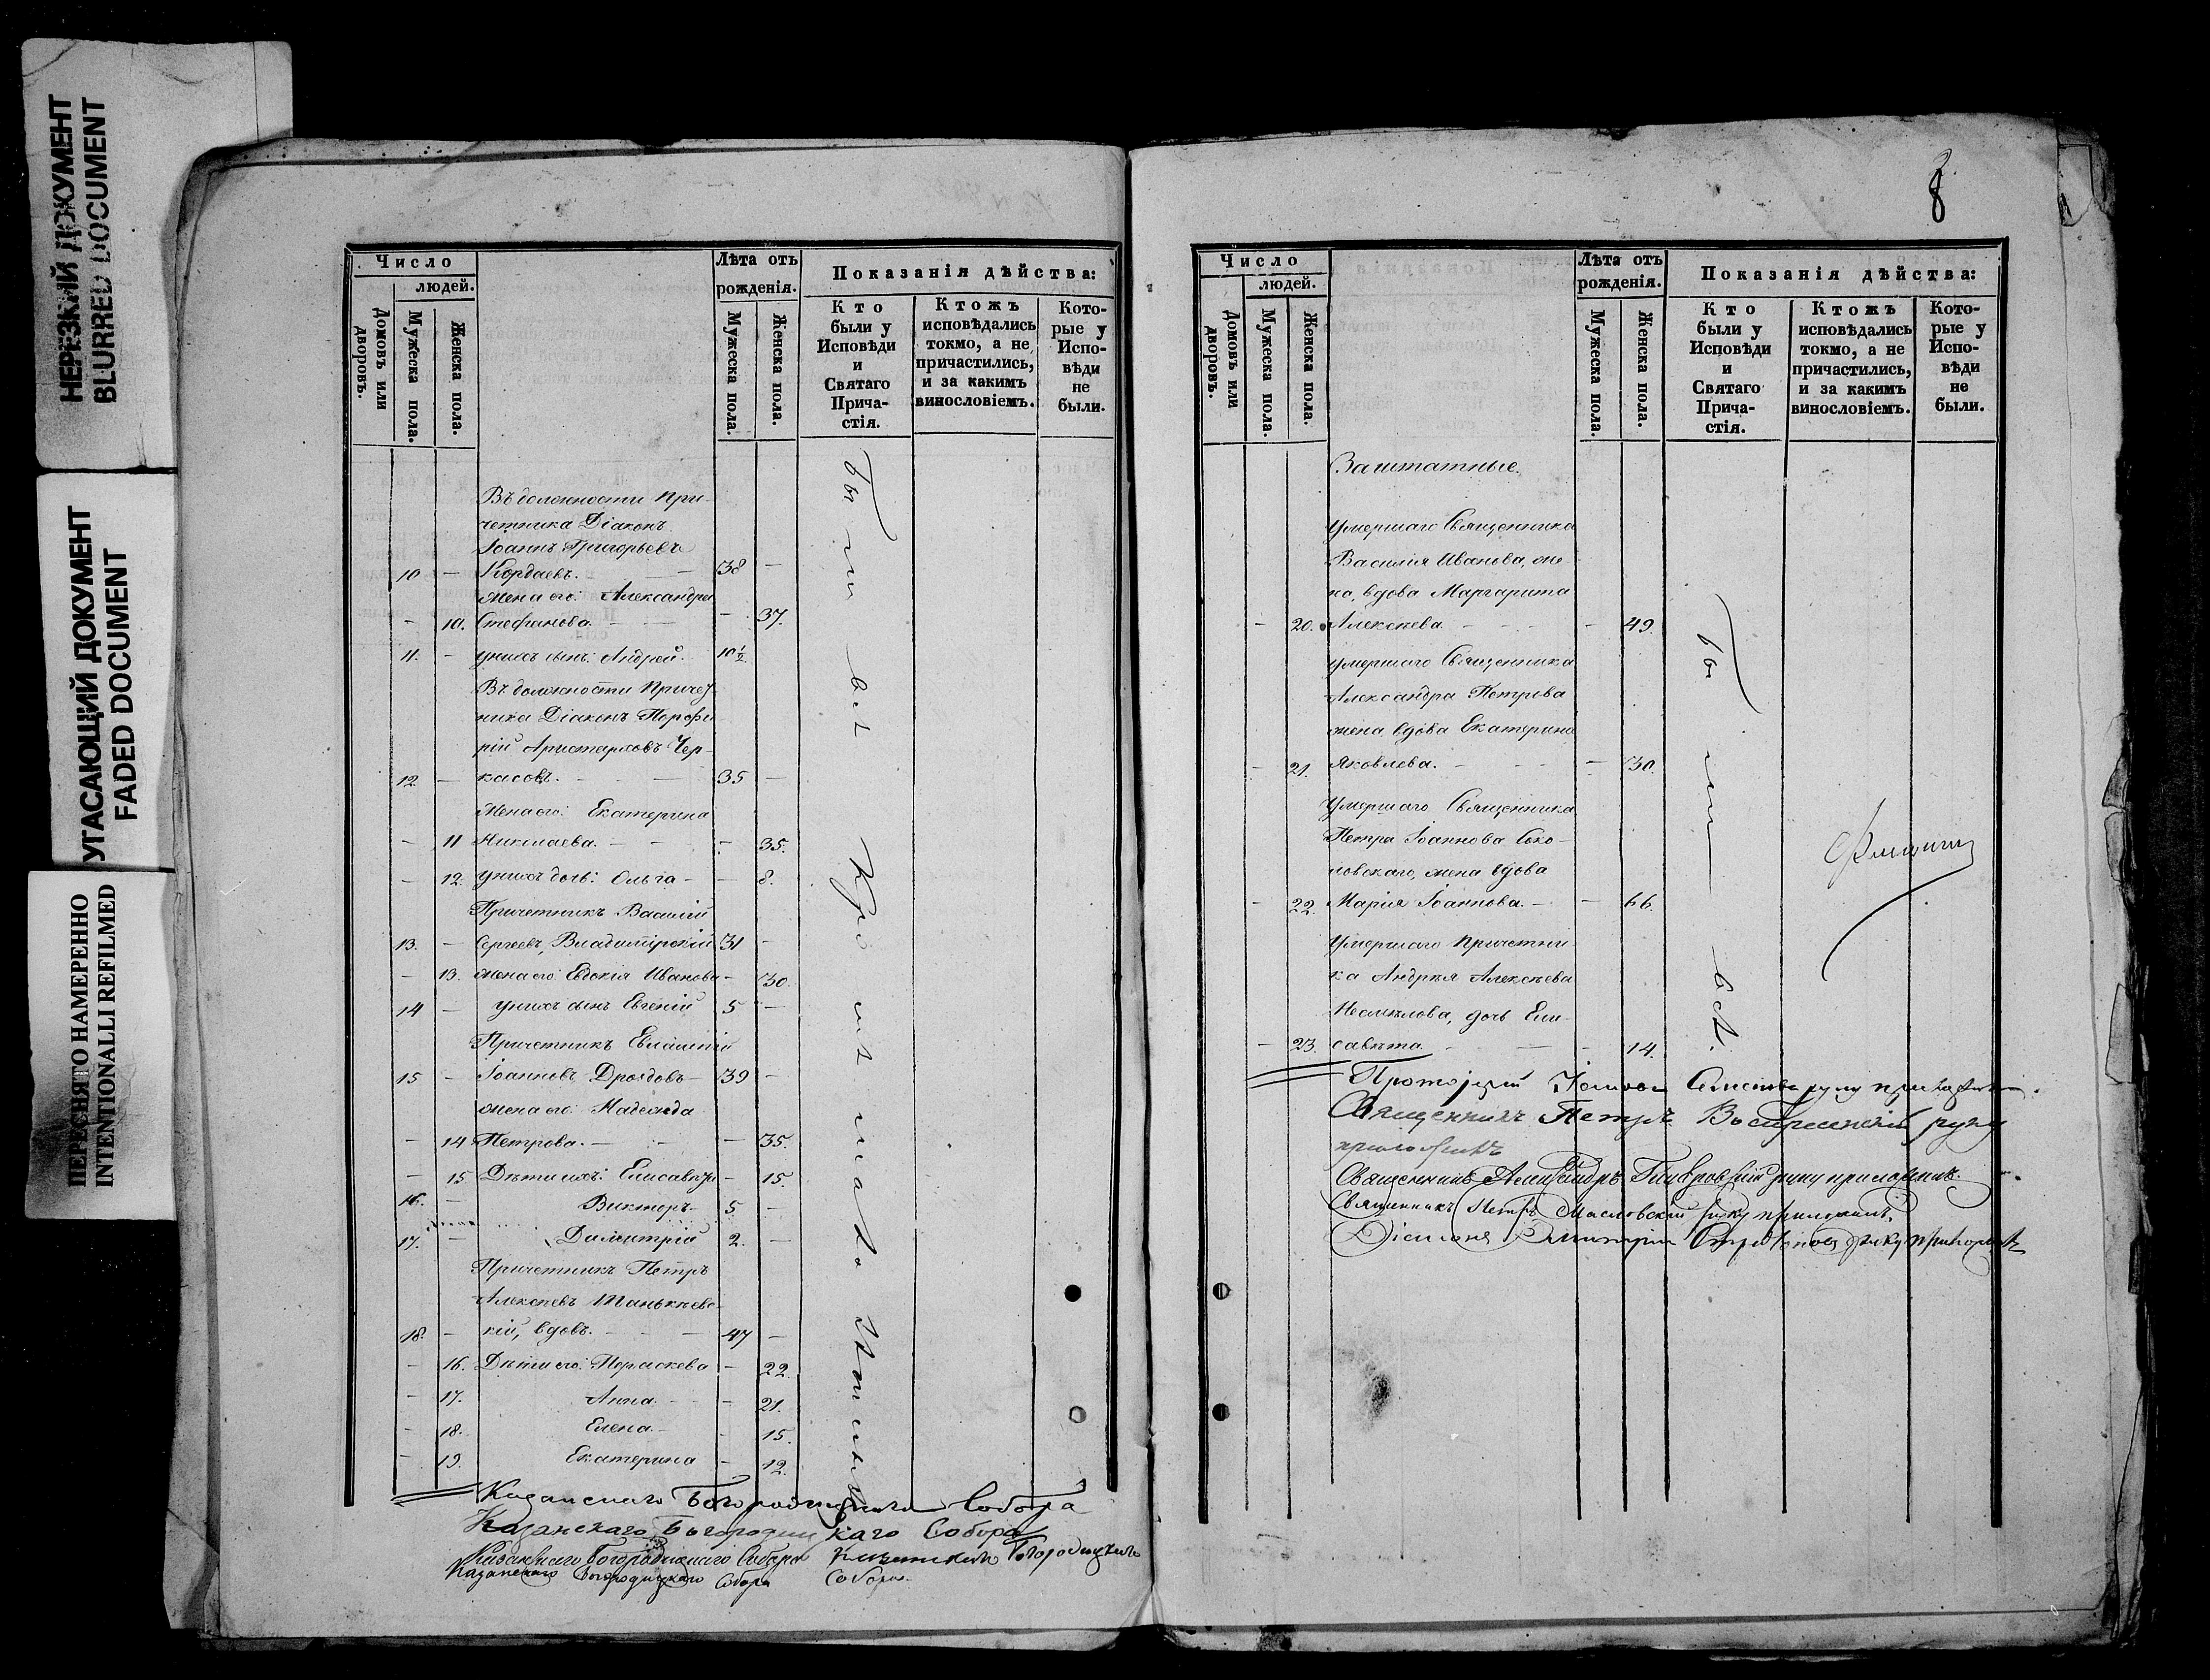 НЕРЕЗКИЙ ДОКУМЕНТ
BLURRED DOCUMENT
УГАСАЮЩИЙ ДОКУМЕНТ
FADED DOCUMENT
ПЕРЕСНЯТО НАМЕРЕННО
INTENTIONALLI REFILMED
Число
людей.
Домовъ или дворовъ.
Мужеска пола.
Женска пола.
Лѣта отъ рожденія.
Мужеска пола.
Женска пола.
Показанія дѣйства:
Кто были у Исповѣди и Святаго Прича-стія.
Ктожъ исповѣдались токмо, а не причастились, и за какимъ винословіемъ.
Кото-рые у Испо-вѣди не были.
Въ должности При-
четника Діаконъ
Іоаннъ Григорьевъ
10 — Кордаевъ. — 38 —
Жена его: Александра
- 10. Стефанова. — - 37.
11. - у нихъ сынъ: Андрей. 10 ½
Въ должности Причет
ника Діаконъ Порфи
рій Аристарховъ Чер-
12. — касовъ. — 35 —
Жена его: Екатерина
- 11 Николаева. — - 35.
- 12. у нихъ дочь: Ольга — — 8.
Причетникъ Василій
13. - Сергеевъ Владимірскій 31 -
- 13. жена его: Евдокія Иванова - 30.
14 — у нихъ сынъ Евгеній 5 —
Причетникъ Евлампій
15 - Іоанновъ Дроздовъ 39 -
жена его: Надежда
- 14 Петрова. — — 35.
- 15 Дѣти ихъ: Елисавета - 15.
16. - Викторъ 5 -
17. — Димитрій 2. —
Причетникъ Петръ
Алексѣевъ
18. - кій, вдовъ. — 47 —
- 16. Дѣти его: Параскева - 22.
- 17. Анна. - 21.
- 18. Елена. - 15.
- 19. Екатерина - 12.
Были всѣ
Казанскаго Богородицкаго Собора
Казанскаго Богородицкаго Собора
Казанскаго Богородицкаго Собора Богородицкаго
Казанскаго Богородицкаго Собора Собора
8
Число
людей.
Домовъ или дворовъ.
Мужеска пола.
Женска пола.
Лѣта отъ рожденія.
Мужеска пола.
Женска пола.
Показанія дѣйства:
Кто были у Исповѣди и Святаго Прича-стія.
Ктожъ исповѣдались токмо, а не причастились, и за какимъ винословіемъ.
Кото-рые у Испо-вѣди не были.
Заштатные.
умершаго Священника
Василія Иванова, же
на, вдова Маргарита
- 20. Алексѣева - 49.
умершаго Священника
Александра Петрова
жена вдова Екатерина
- 21. Яковлева. — 30.
Умершаго Священника
Петра Іоаннова Соко-
ловскаго, жена вдова
- 22. Марія Іоаннова. - 66.
Умершаго Причетни
ка Андрея Алексѣева
Несмѣлова, дочь Ели-
- 23. савета. — - 14.
Были всѣ.
Протоіерей руку приложилъ.
Священникъ Петръ руку
приложилъ
Священникъ Александръ руку приложилъ.
Священникъ Петръ Масловскій руку приложилъ.
Діаконъ Димитрій руку приложилъ